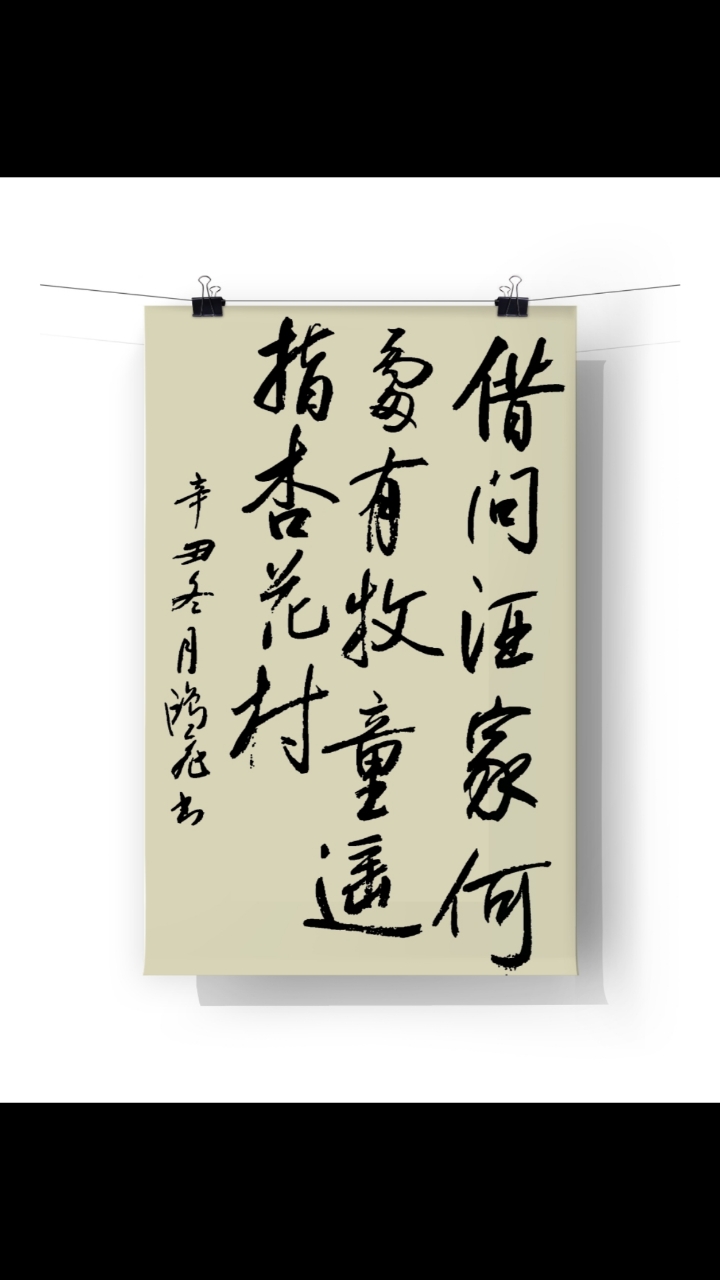 借问酒家何
處有牧童遥
指杏花村
辛丑冬月鸿飞书